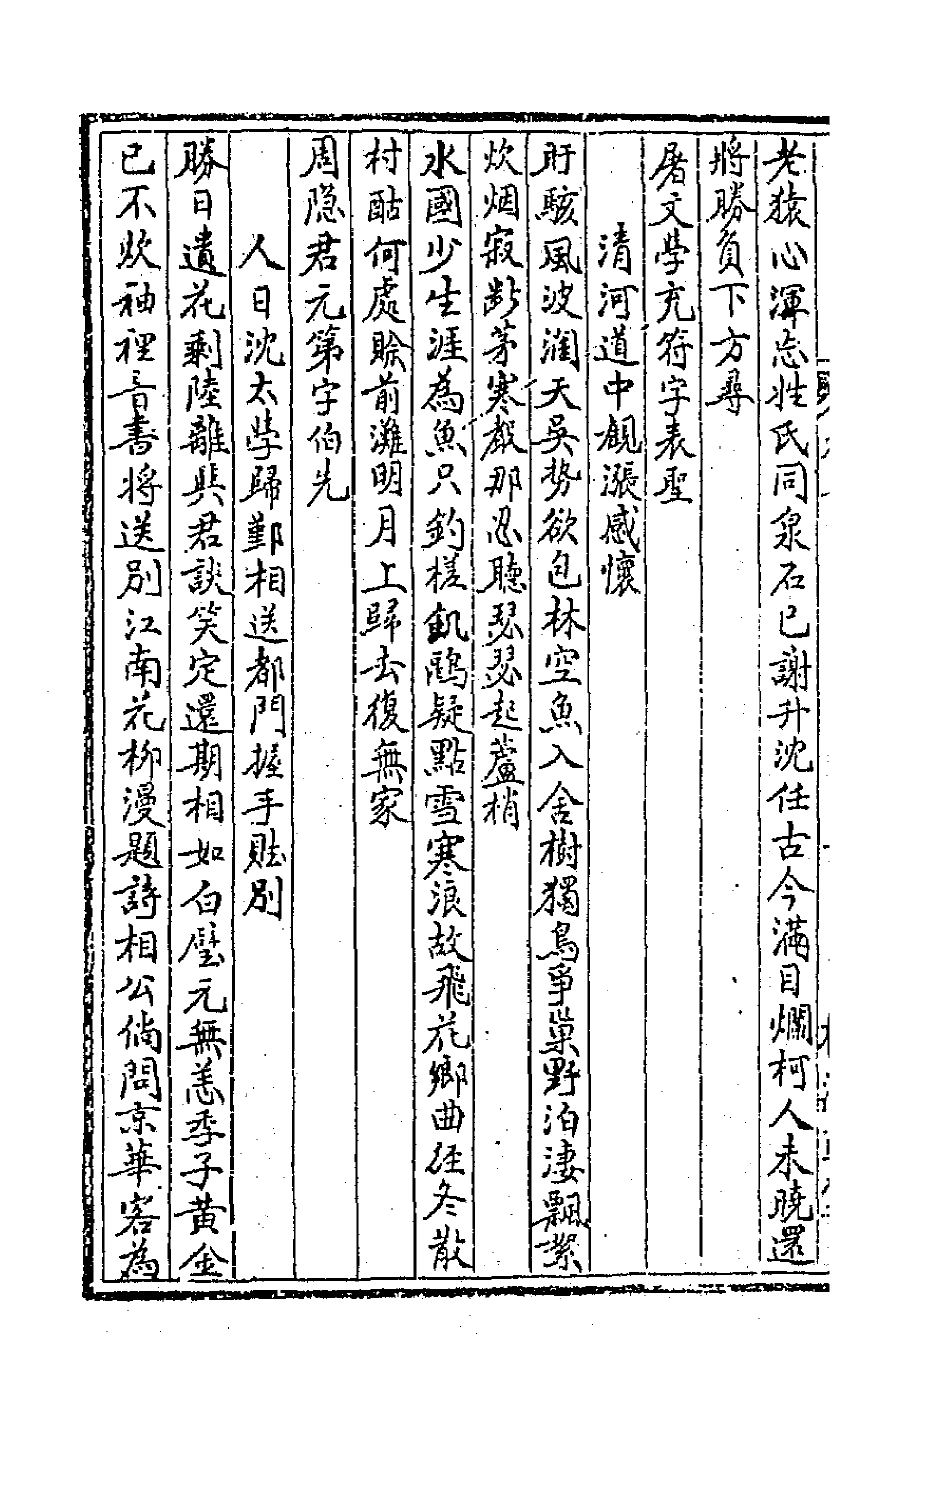 老猿心渾忘姓氏同泉石已謝升沈任古今滿目爛柯人未曉還
將勝負下方尋
屠文學充符字表聖
清河道中覩漲感懷
盱駭風波濶天吳勢欲包林空魚入舍樹獨鳥爭巢野泊淒飄絮
炊烟寂斷茅寒聲那忍聽瑟瑟起蘆梢
水國少生涯為魚只釣槎飢鴎疑點雪寒浪故飛花鄉曲徑冬散
村酤何處賖前灘明月上歸去復無家
周隐君元第字伯先
人日沈太學歸鄞相送都門握手貽別
勝日遺花剩陸離與君談笑定還期相如白璧元無恙季子黃金
已不炊袖裡音書將送別江南花柳漫題詩相公倘問京華客為